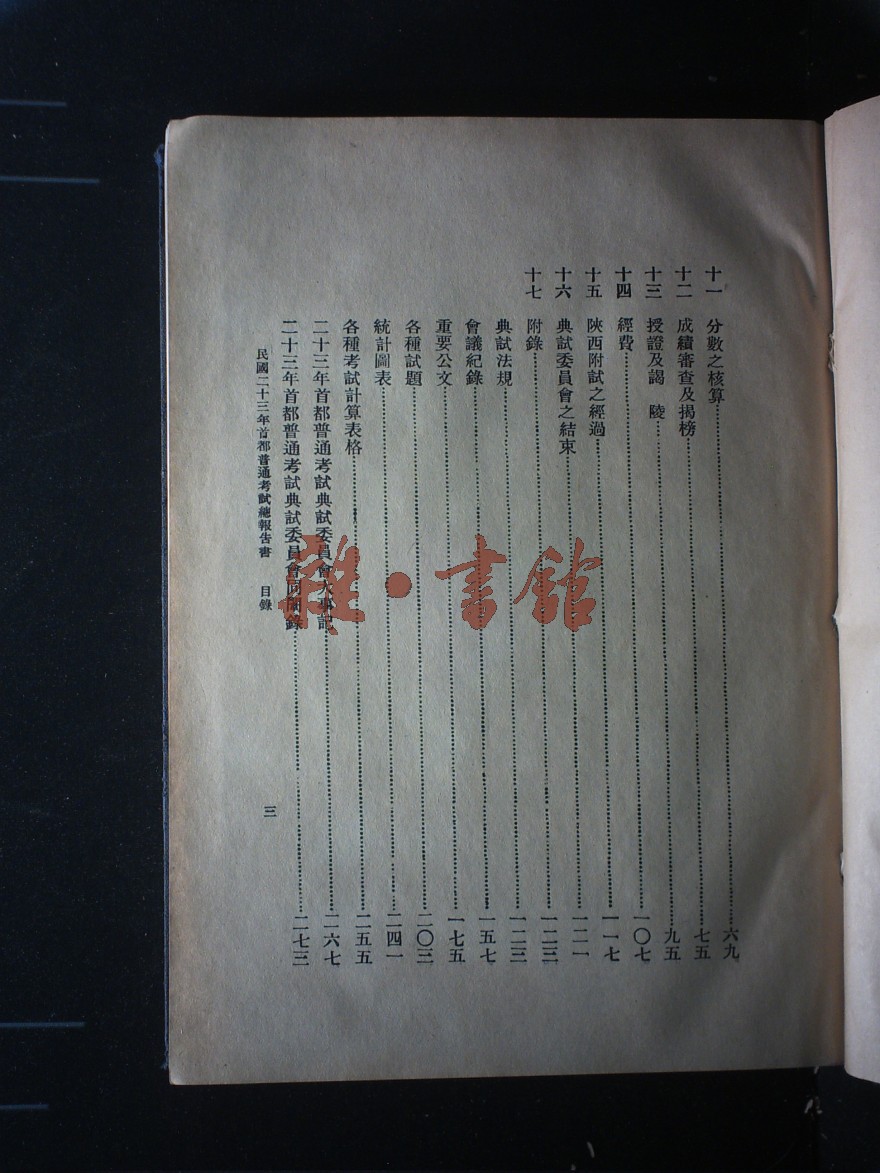 十一 分數之核算 六九
十二 成績審查及揭榜 七五
十三 授證及謁 陵 九五
十四 經費 一〇七
十五 陝西附試之經過 一一七
十六 典試委員會之結束 一二一
十七 附錄 一二三
典試法規 一二三
會議紀錄 一五七
重要公文 一七五
各種試題 二〇三
統計圖表 二四一
各種考試計算表格 二五五
二十三年首都普通考試典試委員會大事記 二六七
二十三年首都普通考試典試委員會同闈錄 二七三
民國二十三年首都普通考試總報告書 目錄 三
雜·書館